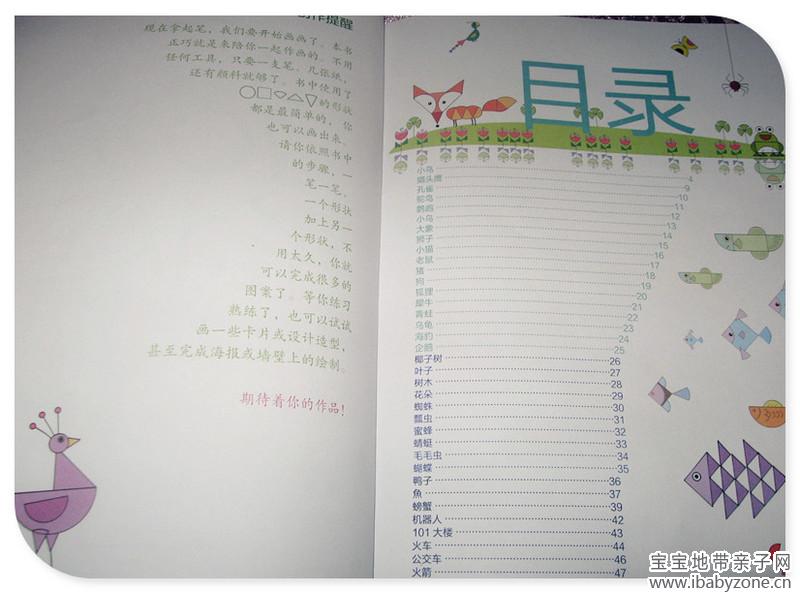 作提醒
现在拿起笔，我们要开始画画了。本书
正巧就是来陪你一起作画的。不用
任何工具，只要一支笔、几张纸，
还有颜料就够了。书中使用了
的形状
都是最简单的，你
也可以画出来。
请你依照书中
的步骤，一
笔一笔、
一个形状
加上另一
个形状，不
用太久，你就
可以完成很多的
图案了。等你练习
熟练了，也可以试试
画一些卡片或设计造型，
甚至完成海报或墙壁上的绘制。
期待着你的作品！
目录
小鸟 4
猫头鹰 9
孔雀 10
鸵鸟 11
鹦鹉 12
小鸟 13
大象 14
狮子 15
小猫 16
老鼠 17
猪 18
狗 19
狐狸 20
犀牛 21
青蛙 22
乌龟 23
海豹 24
企鹅 25
椰子树 26
叶子 27
树木 28
花朵 29
蜘蛛 30
瓢虫 31
蜜蜂 32
蜻蜓 33
毛毛虫 34
蝴蝶 35
鸭子 36
魚 37
螃蟹 39
机器人 42
101大楼 43
火车 44
公交车 46
火箭 47
宝宝地带亲子网
www.ibabyzone.cn